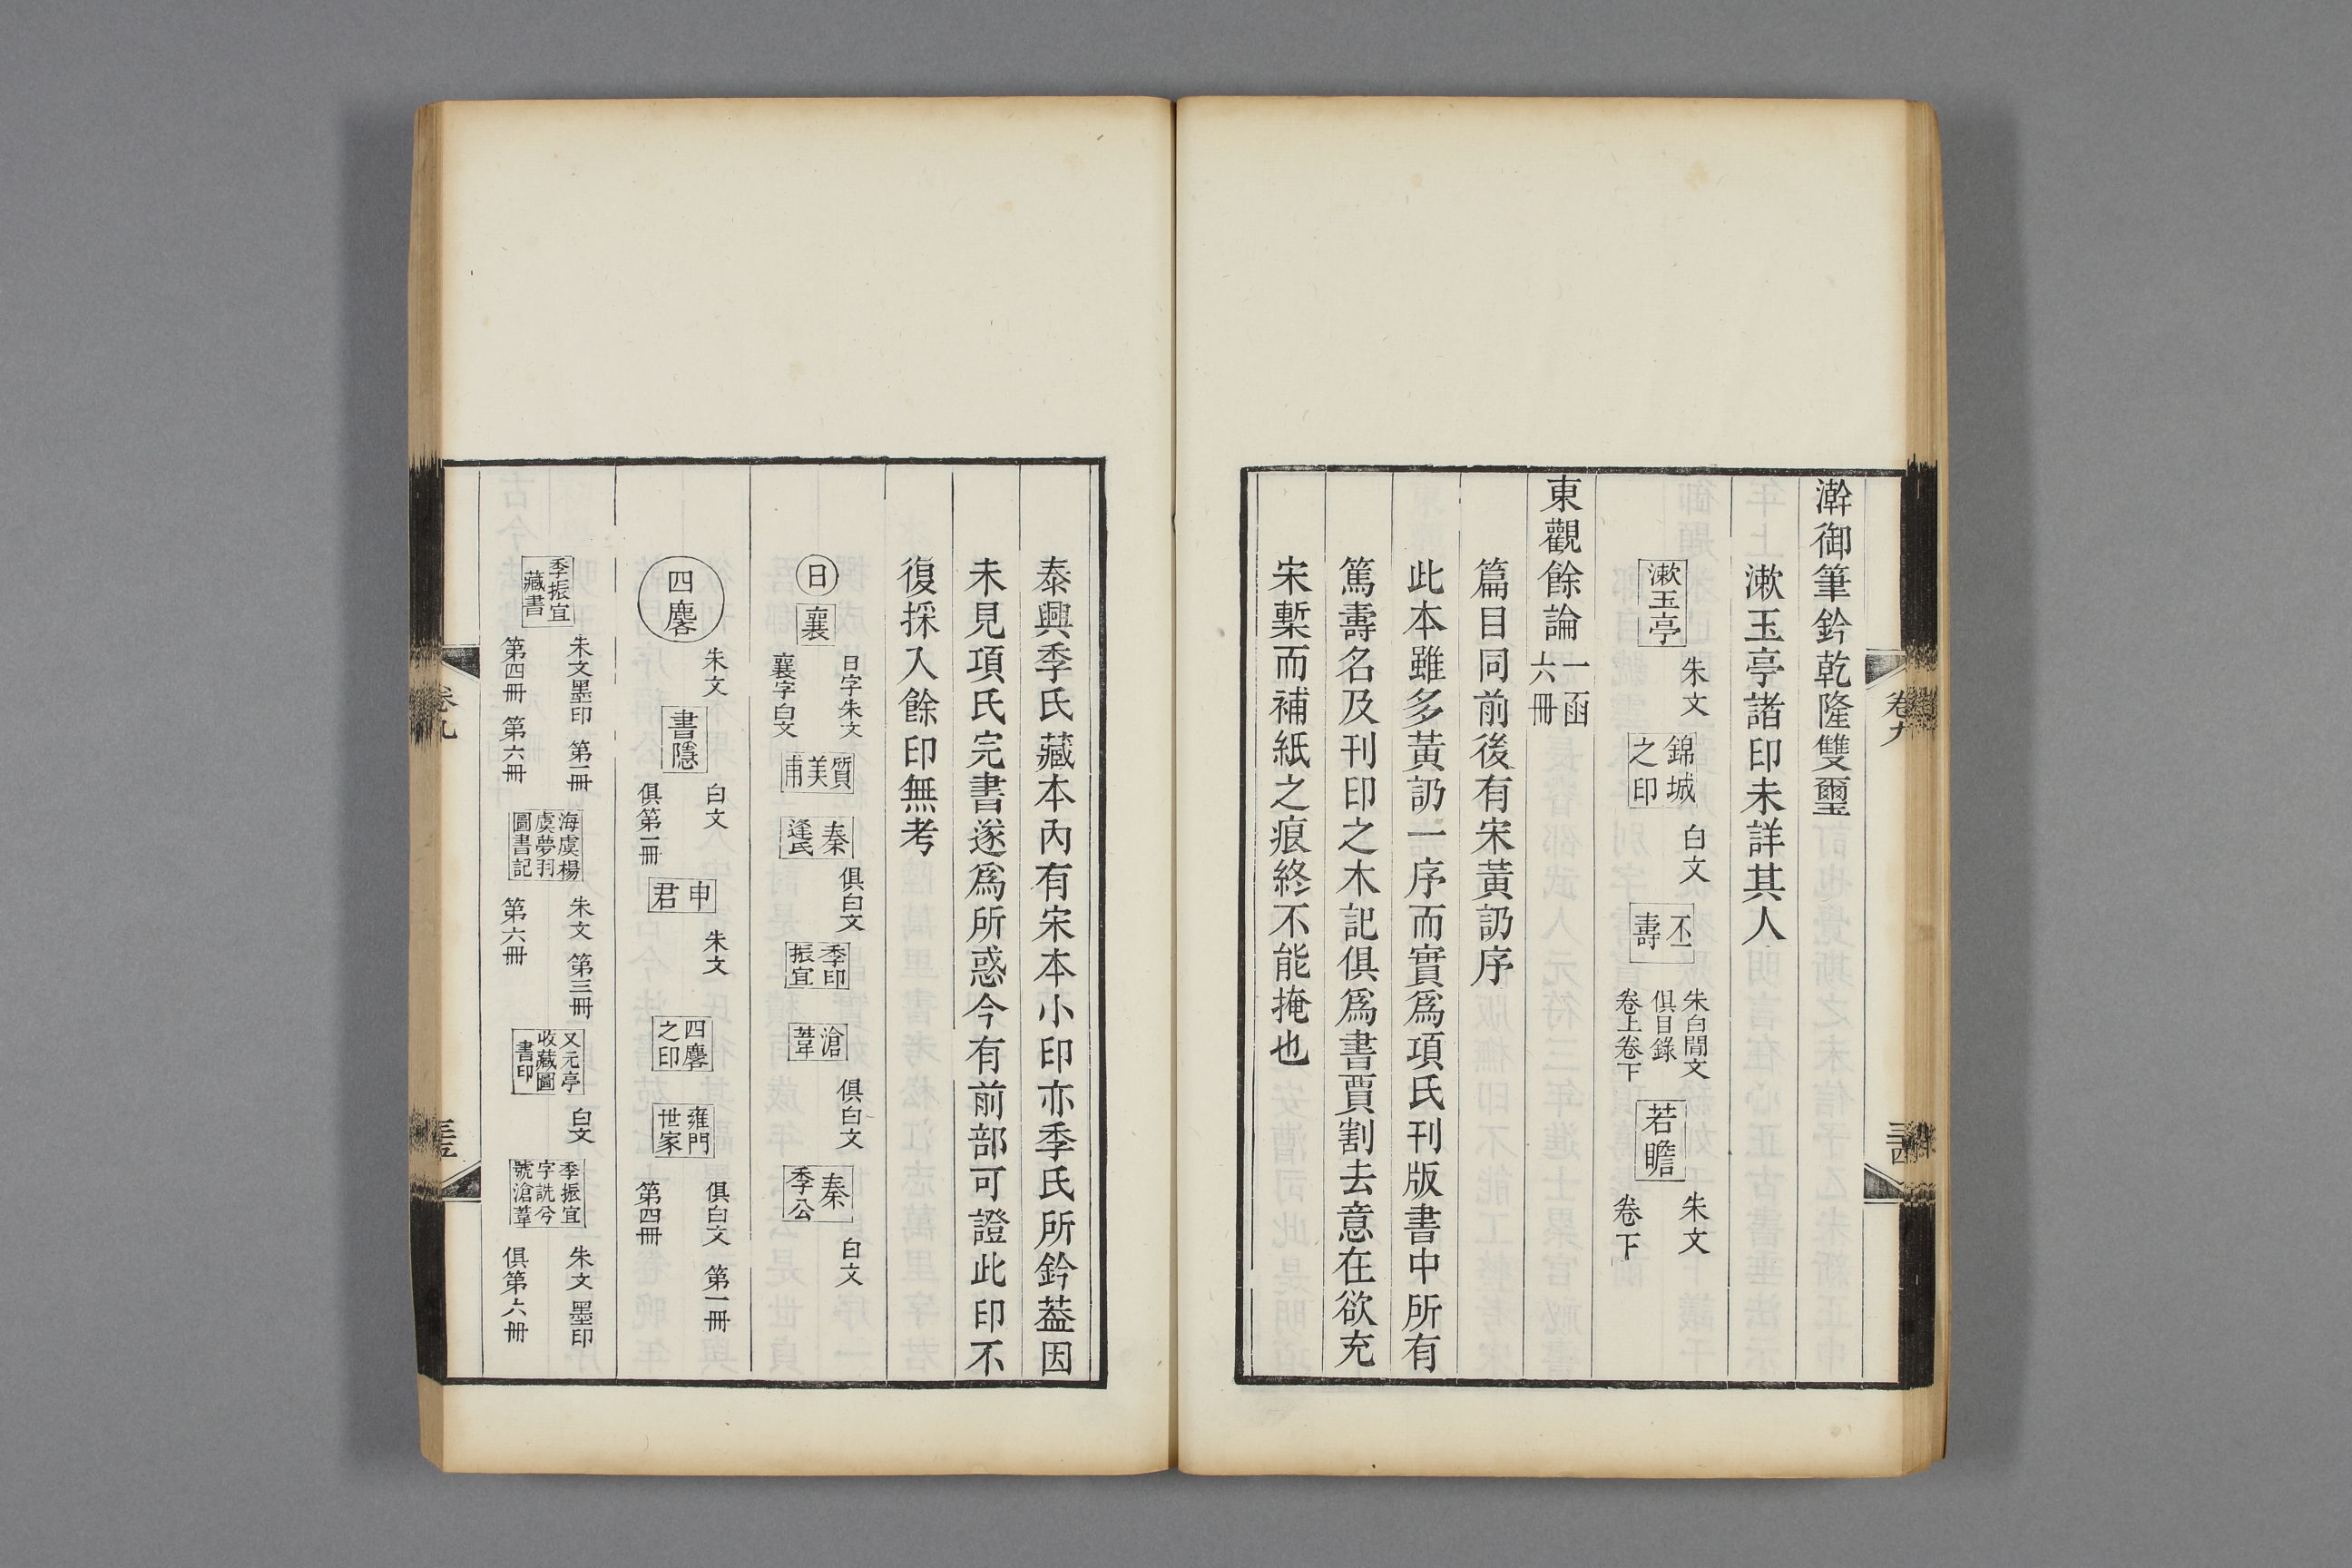 澣御筆鈐乾隆雙璽
漱玉亭諸印未詳其人
漱玉亭
朱文
錦城
之印
白文
丕
壽
朱白閒文
俱目錄
卷上卷下
若瞻
朱文
卷下
東觀餘論
一函
六冊
篇目同前後有宋黃訒序
此本雖多黃訒一序而實爲項氏刊版書中所有
篤壽名及刊印之木記俱爲書賈割去意在欲充
宋槧而補紙之痕終不能掩也
卷九
三四
泰興季氏藏本內有宋本小印亦季氏所鈐葢因
未見項氏完書遂爲所惑今有前部可證此印不
復採入餘印無考
日
襄
日字朱文
襄字白文
質美甫
秦
逢民
俱白文
季印
振宜
滄
葦
俱白文
秦
季公
白文
四麐
朱文
書隱
白文
俱第二冊
申
君
朱文
四麐
之印
雍門
世家
俱白文 第一冊
第四冊
季振宜
藏書
朱文墨印 第一冊
第四冊 第六冊
海虞楊
虞夢羽
圖書記
朱文 第三冊
第六冊
又元亭
收藏圖
書印
白文
季振宜
字詵兮
號滄葦
朱文 墨印
俱第六冊
卷九
三五